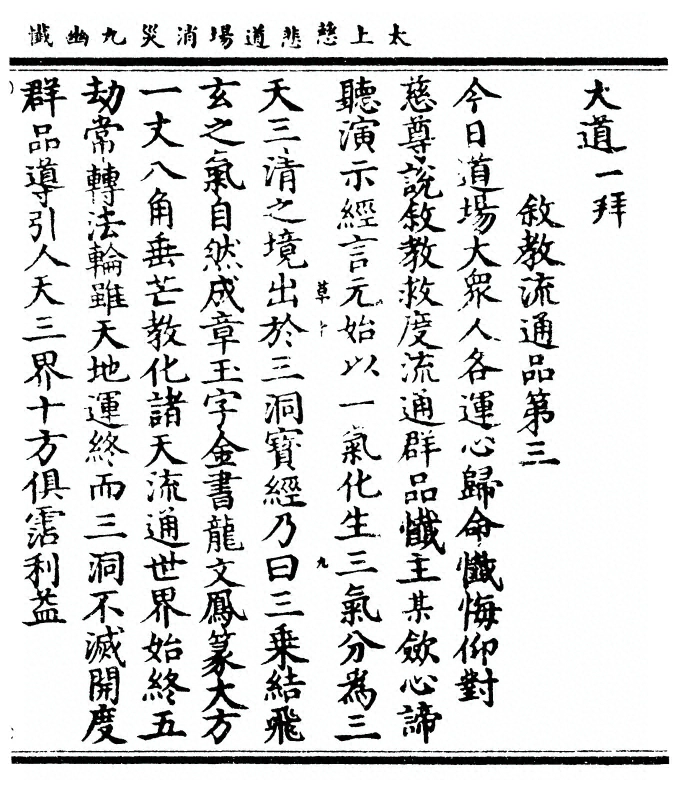 太上慈悲道場消災九幽懺
大道一拜
敘教流通品第三
今日道場大眾人各運心歸命懺悔仰對
慈尊說敘教救度流通群品懺主某歛心諦
聽演示經言元始以一氣化生三氣分為三
天三清之境出於三洞寶經乃曰三乘結飛
玄之氣自然成章玉字金書龍文鳳篆大方
一丈八角垂芒教化諸天流通世界始終五
劫常轉法輪雖天地運終而三洞不滅開度
群品導引人天三界十方俱霑利益
草十
九